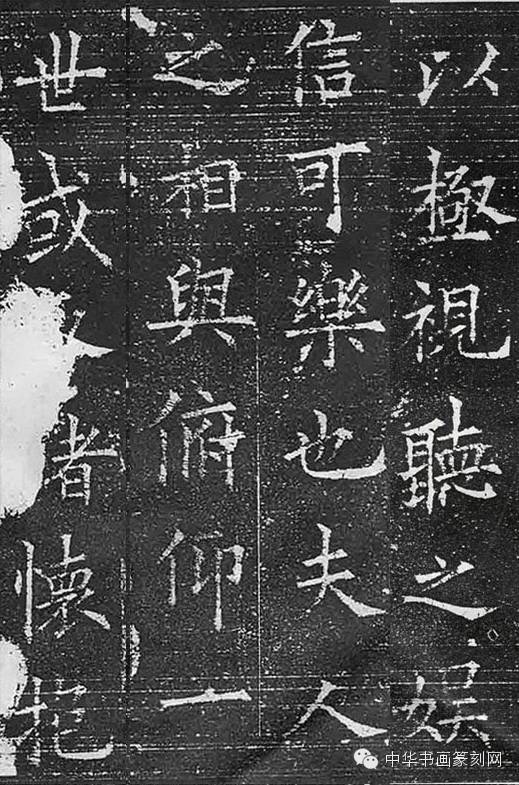 以極視聽之娱
信可樂也夫人
之相與俯仰一
世或者懷抱
中华书画篆刻网